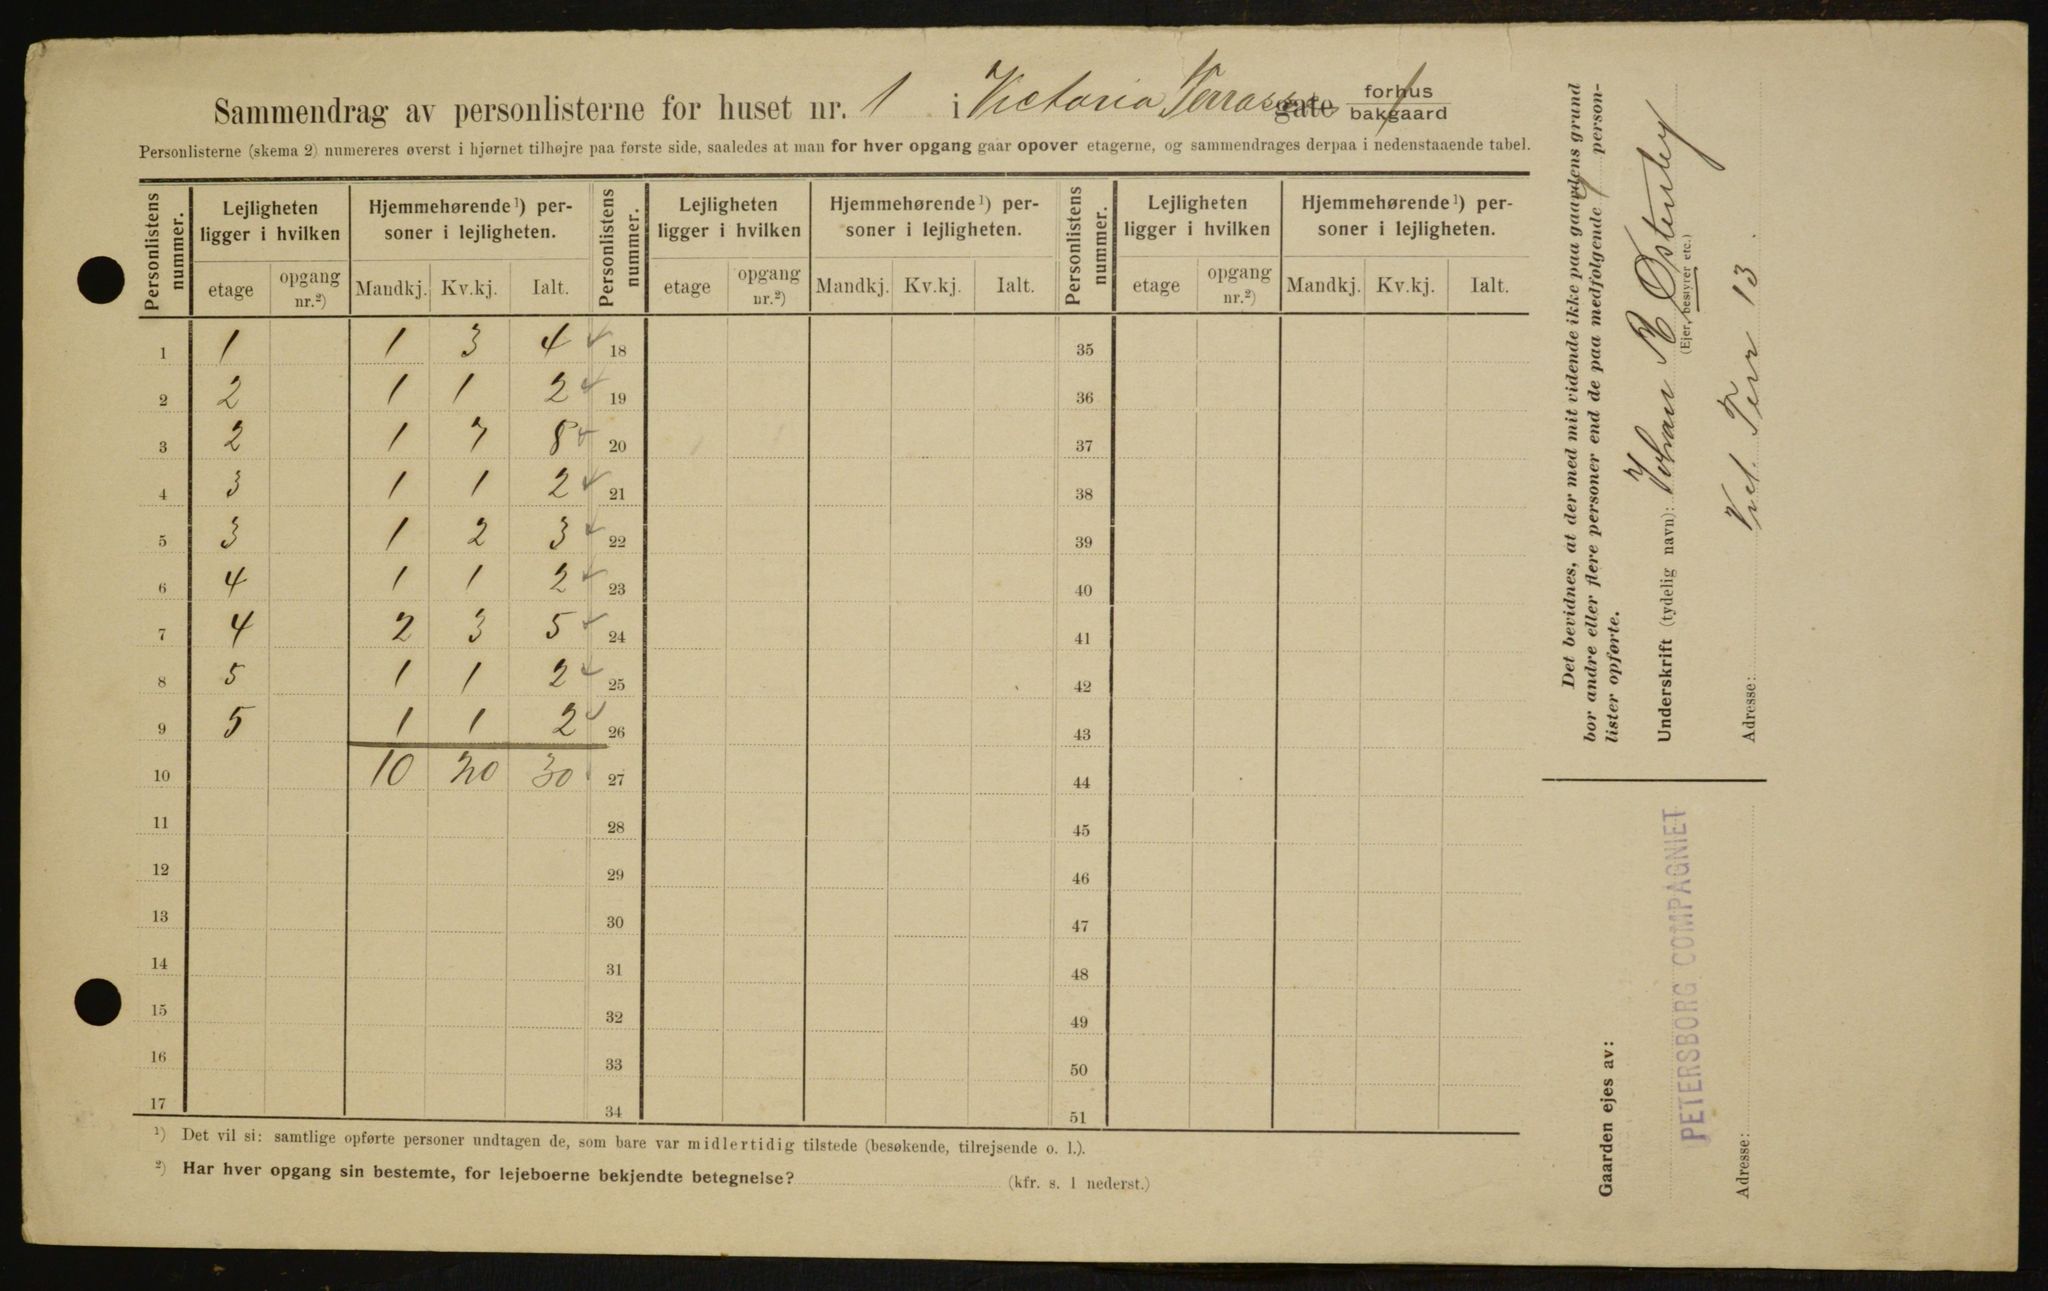 Sammendrag av personlisterne for huset nr. 1 i Victoria Terrasse gate forhus bakgaard
Personlisterne (skema 2) numereres øverst i hjørnet tilhøjre paa første side, saaledes at man for hver opgang gaar opover etagerne, og sammendrages derpaa i nedenstaaende tabel.
Personlistens nummer. Lejligheten ligger i hvilken Hjemmehørende ¹) personer i lejligheten. Personlistens nummer. Lejligheten ligger i hvilken Hjemmehørende ¹) personer i lejligheten. Personlistens nummer. Lejligheten ligger i hvilken Hjemmehørende ¹) personer i lejligheten.
etage opgang nr.²) Mandkj. Kv.kj. Ialt. etage opgang nr.²) Mandkj. Kv.kj. Ialt. etage opgang nr.²) Mandkj. Kv.kj. Ialt.
1 1 1 3 4 18 35
2 2 1 1 2 19 36
3 2 1 7 8 20 37
4 3 1 1 2 21 38
5 3 1 2 3 22 39
6 4 1 1 2 23 40
7 4 2 3 5 24 41
8 5 1 1 2 25 42
9 5 1 1 2 26 43
10 10 20 30 27 44
11 28 45
12 29 46
13 30 47
14 31 48
15 32 49
16 33 50
17 34 51
¹) Det vil si: samtlige opførte personer undtagen de, som bare var midlertidig tilstede (besøkende, tilrejsende o. l.).
²) Har hver opgang sin bestemte, for lejeboerne bekjendte betegnelse? (kfr. s. 1 nederst.)
Det bevidnes, at der med mit vidende ikke paa gaardens grund
bor andre eller flere personer end de paa medfølgende personlister opførte.
Underskrift (tydelig navn): Johan R Østenby
(Ejer, bestyrer etc.)
Adresse: Vict. Terr 13
Gaarden ejes av:
PETERSBORG COMPAGNIET
Adresse: